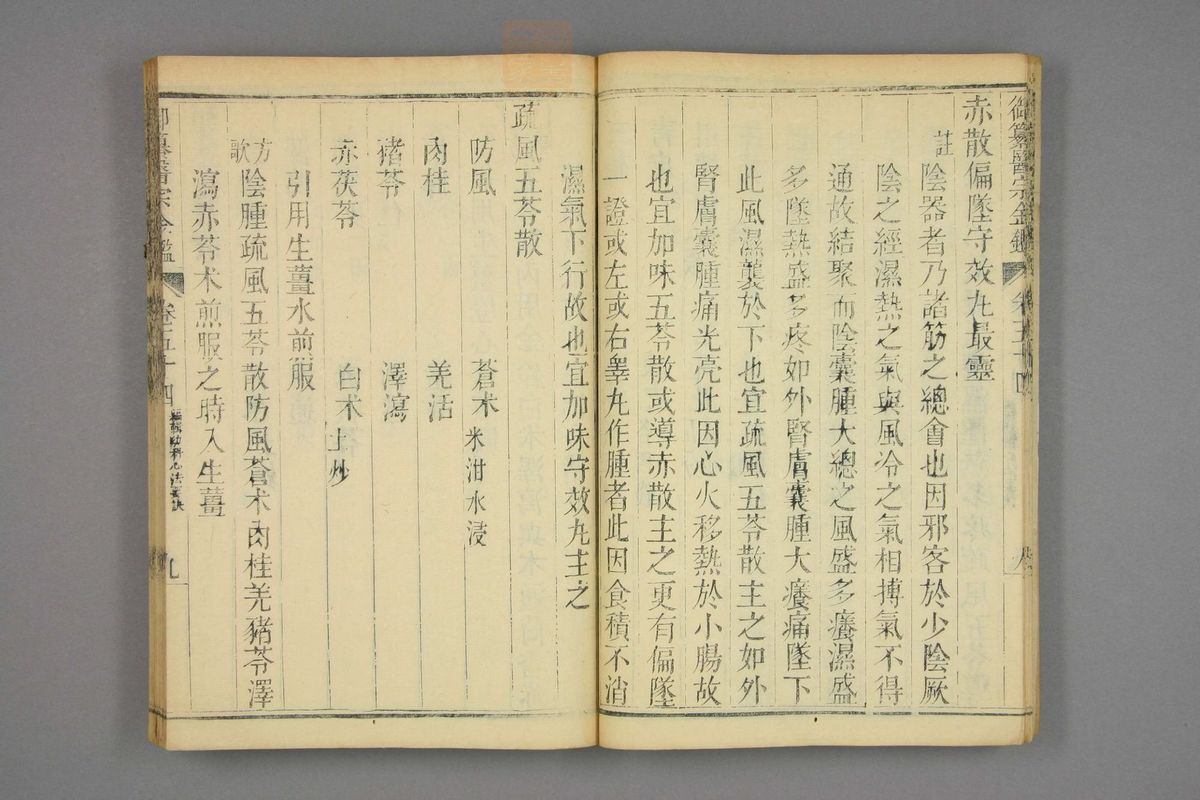 御纂醫宗金鑑 卷五十四
赤散偏墜守效丸最靈
註 陰器者乃諸筋之總會也因邪客於少陰厥
陰之經濕熱之氣與風冷之氣相搏氣不得
通故結聚而陰囊腫大總之風盛多癢濕盛
多墜熱盛多疼如外腎膚囊腫大癢痛墜下
此風濕襲於下也宜疏風五苓散主之如外
腎膚囊腫痛光亮此因心火移熱於小腸故
也宜加味五苓散或導赤散主之更有偏墜
一證或左或右睪丸作腫者此因食積不消
濕氣下行故也宜加味守效丸主之
疏風五苓散
防風 蒼朮 米泔水浸
肉桂 羌活
豬苓 澤瀉
赤茯苓 白朮 土炒
引用生薑水煎服
方歌 陰腫疏風五苓散防風蒼朮肉桂羌豬苓澤
瀉赤苓朮煎服之時入生薑
御纂醫宗金鑑 卷五十四 編輯幼科心法要訣 九